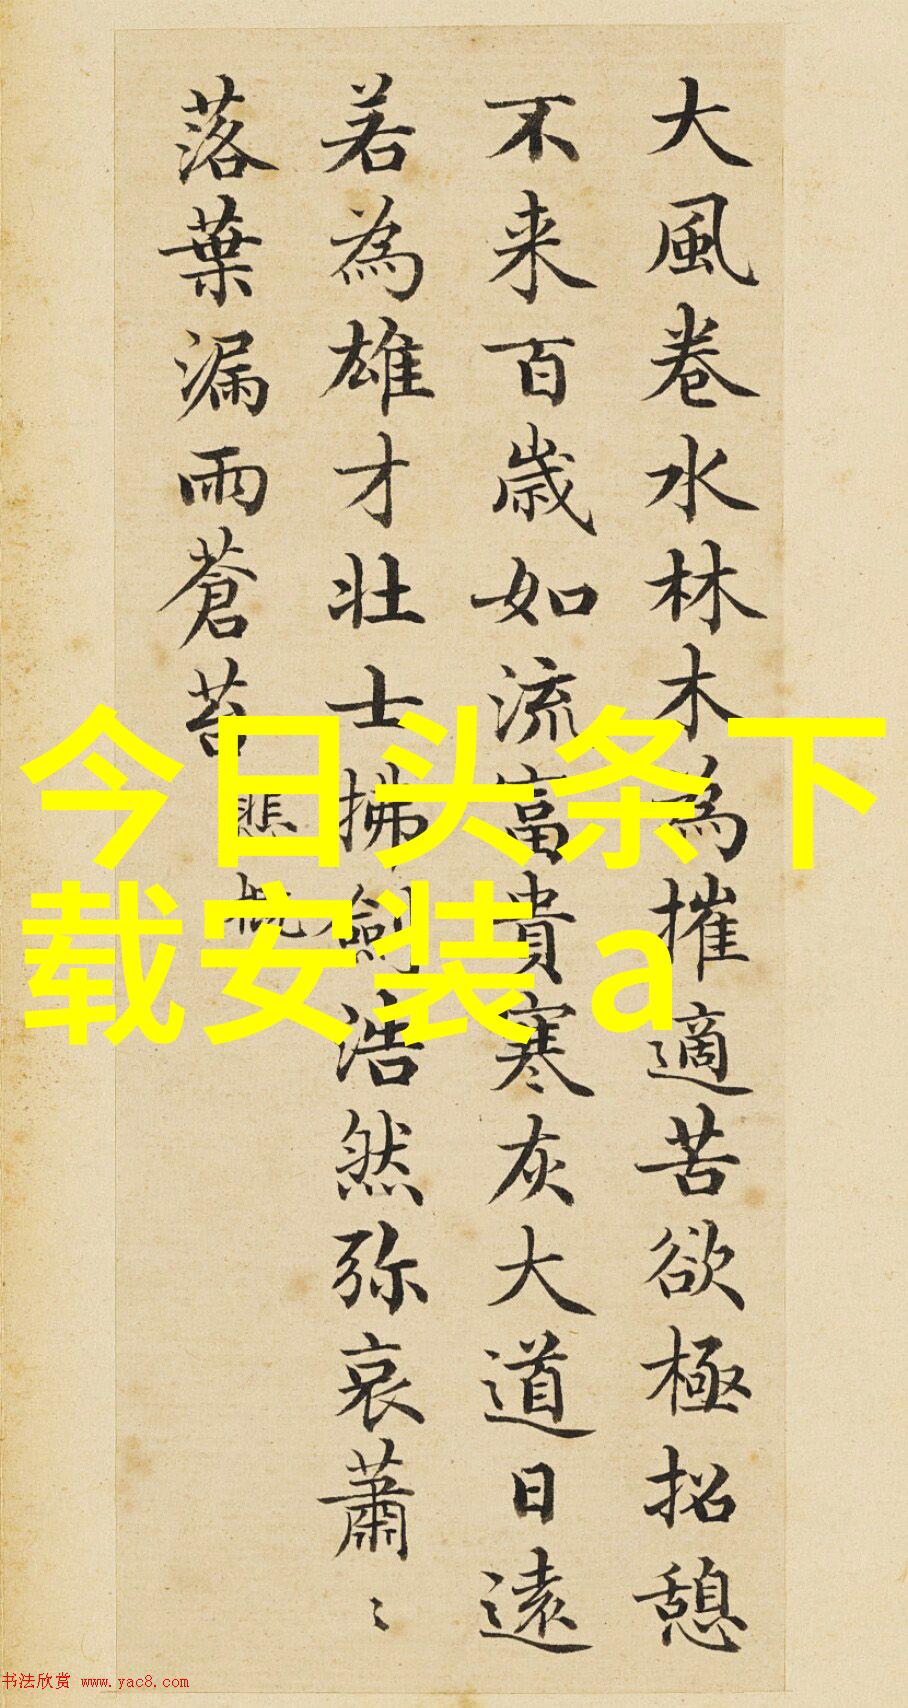 大風卷水林木為摧適苦欲極招憩
不来百歲如流富貴寒灰大道日遠
若為雄才壮士拂劍浩然弥哀蕭〻
落葉漏雨蒼苔
悲慨
今日头条下
载安装a
书法欣赏 www.yac8.com